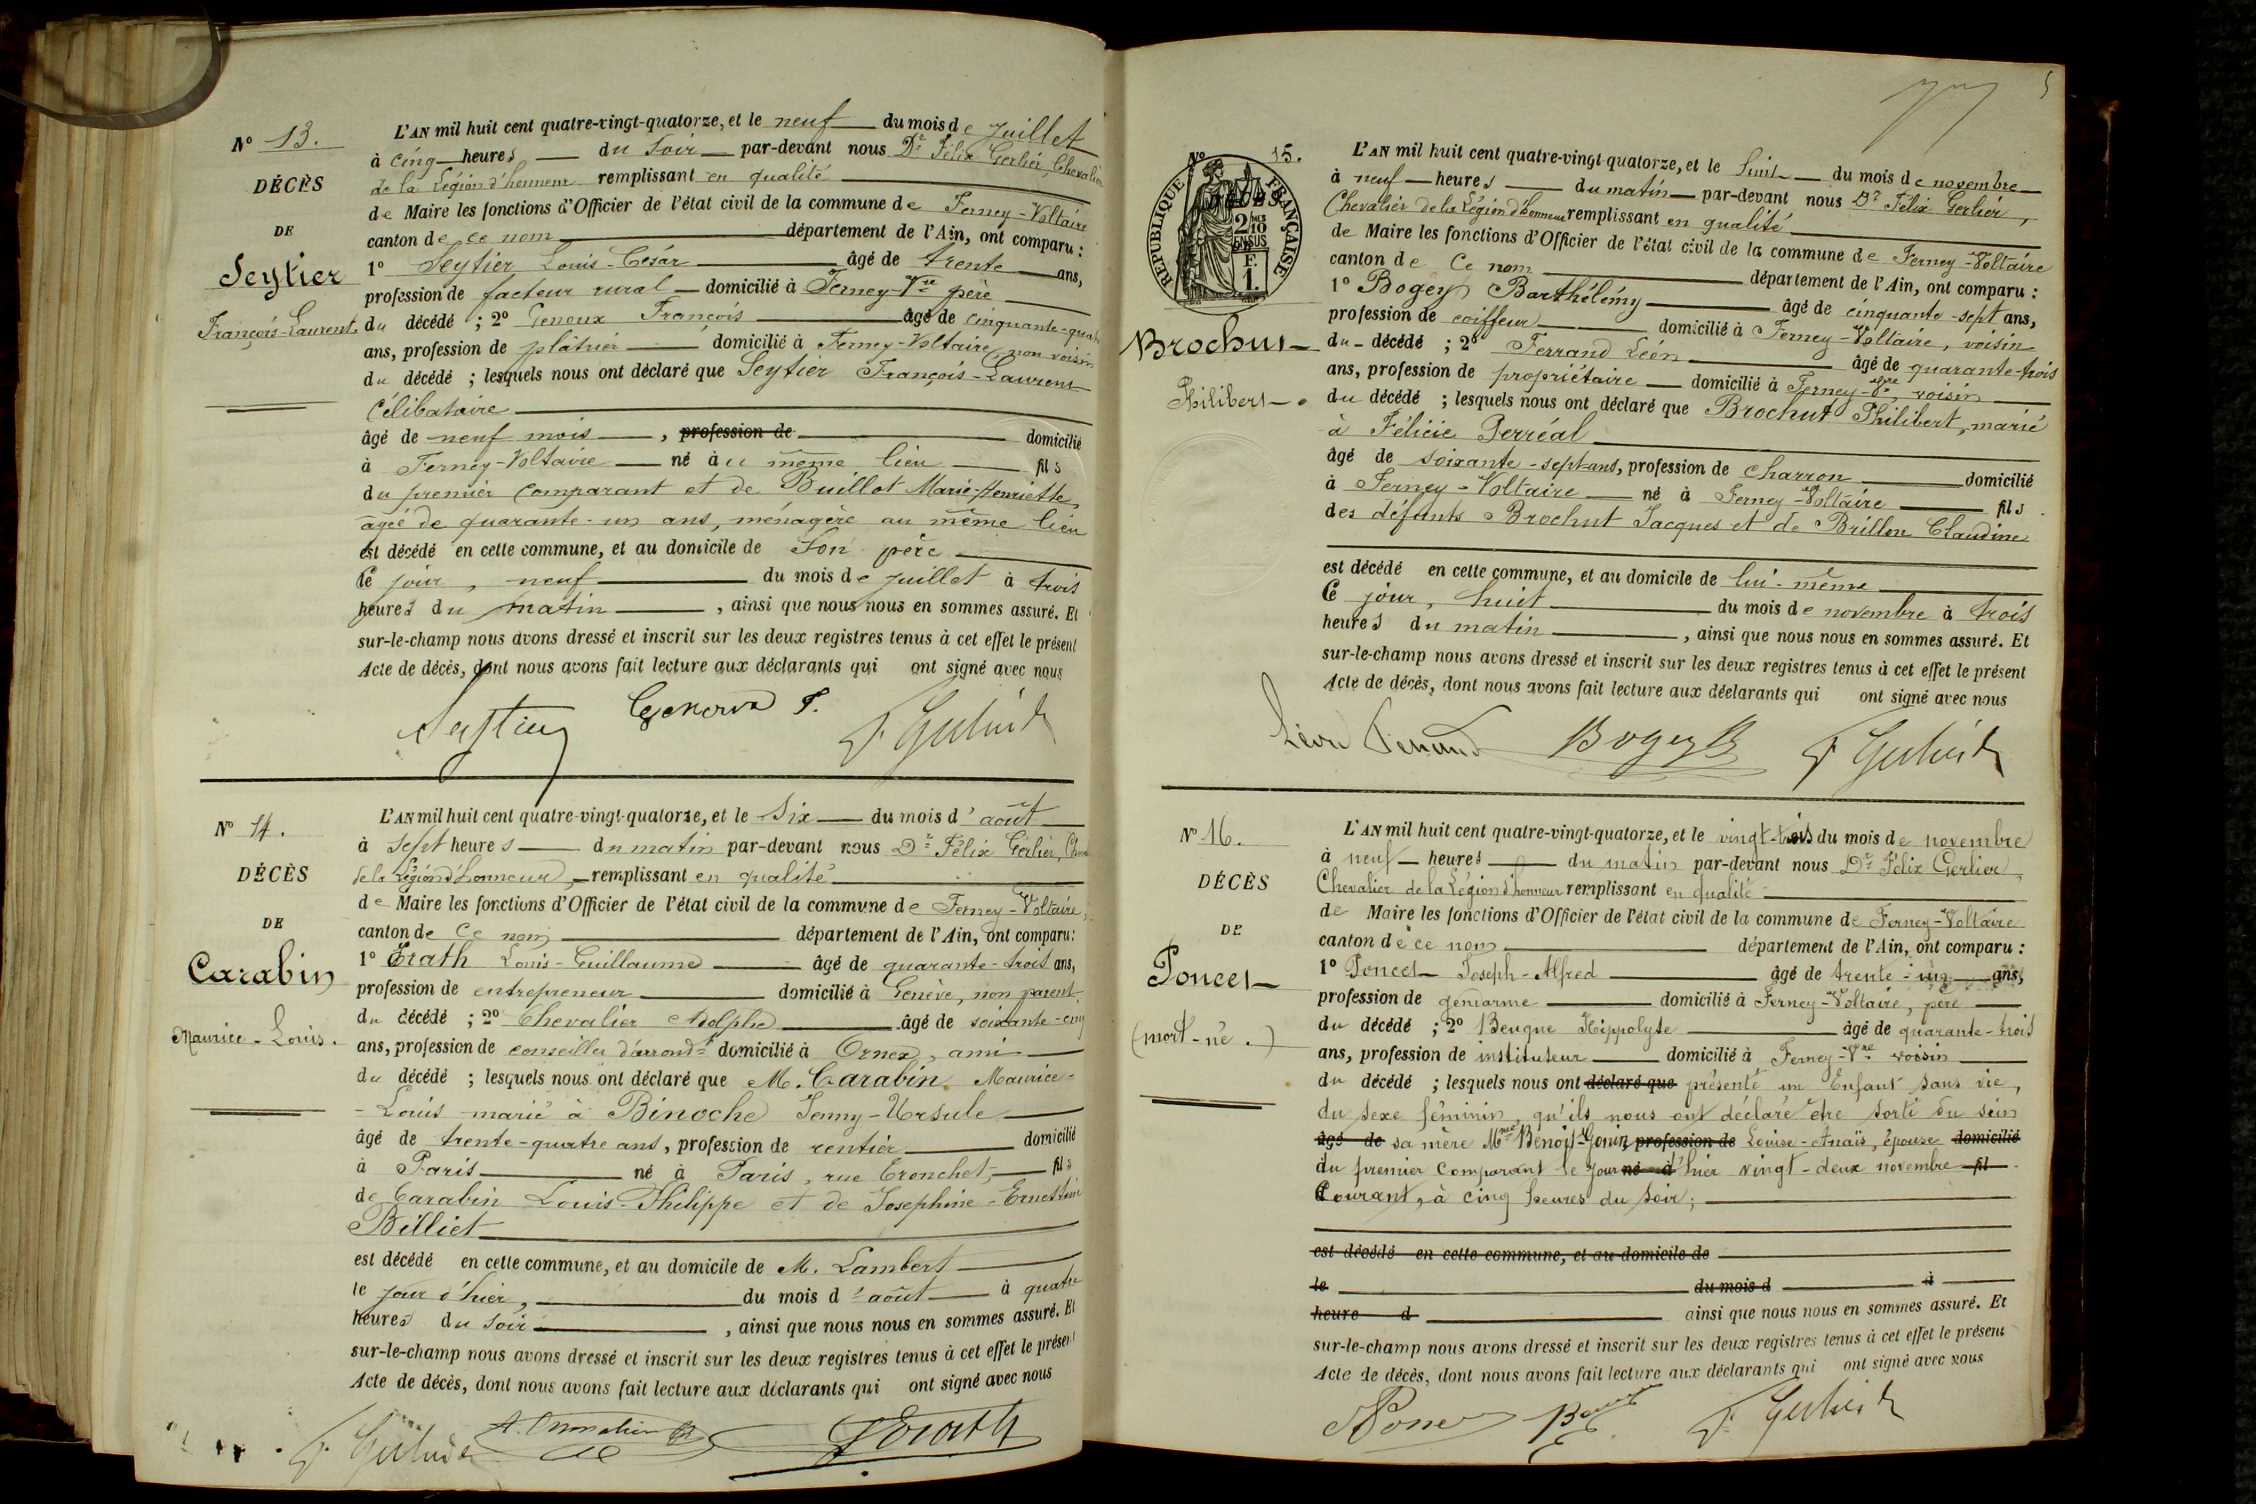 N° 13.
DÉCÈS
DE
Seytier
François-Laurent.
L'AN mil huit cent quatre-vingt-quatorze, et le neuf du mois de juillet
à cinq heures du soir par-devant nous Dr Félix Gerlier, Chevalier
de la Légion d'honneur remplissant en qualité
de Maire les fonctions d'Officier de l'état civil de la commune de Ferney-Voltaire
canton de ce nom département de l'Ain, ont comparu :
1° Seytier Louis-César âgé de trente ans,
profession de facteur rural domicilié à Ferney-Vre père
du décédé ; 2° Genoux François âgé de cinquante-quatre
ans, profession de plâtrier domicilié à Ferney-Voltaire, non voisin
du décédé ; lesquels nous ont déclaré que Seytier François-Laurent
Célibataire
âgé de neuf mois, profession de domicilié
à Ferney-Voltaire né au même lieu fils
du premier comparant et de Buillot Marie-Henriette,
âgée de quarante-un ans, ménagère au même lieu
est décédé en cette commune, et au domicile de son père
Ce jour, neuf du mois de juillet à trois
heures du matin, ainsi que nous nous en sommes assuré. Et
sur-le-champ nous avons dressé et inscrit sur les deux registres tenus à cet effet le présent
Acte de décès, dont nous avons fait lecture aux déclarants qui ont signé avec nous
Seytier Genoux F. F. Gerlier
N° 14.
DÉCÈS
DE
Carabin
Maurice-Louis.
L'AN mil huit cent quatre-vingt-quatorze, et le six du mois d'août
à sept heures du matin par-devant nous Dr Félix Gerlier, Chev
de la Légion d'honneur, remplissant en qualité
de Maire les fonctions d'Officier de l'état civil de la commune de Ferney-Voltaire,
canton de Ce nom département de l'Ain, ont comparu :
1° Erath Louis-Guillaume âgé de quarante-trois ans,
profession de entrepreneur domicilié à Genève, non parent
du décédé ; 2° Chevalier Adolphe âgé de soixante-cinq
ans, profession de conseiller d'arrondt domicilié à Ornex, ami
du décédé ; lesquels nous ont déclaré que M. Carabin Maurice-
-Louis marié à Binoche Jenny-Ursule
âgé de trente-quatre ans, profession de rentier domicilié
à Paris né à Paris, rue Tronchet, fils
de Carabin Louis-Philippe et de Josephine-Ernestine
Billiet
est décédé en cette commune, et au domicile de M. Lambert
le jour d'hier, du mois d'août à quatre
heures du soir, ainsi que nous nous en sommes assuré. Et
sur-le-champ nous avons dressé et inscrit sur les deux registres tenus à cet effet le présent
Acte de décès, dont nous avons fait lecture aux déclarants qui ont signé avec nous
F. Gerlier A. Chevalier L Erath
5
N° 15.
DÉCÈS
RÉPUBLIQUE FRANÇAISE
2/10 EN SUS
F. 1.
Brochut
Philibert.
L'AN mil huit cent quatre-vingt-quatorze, et le huit du mois de novembre
à neuf heures du matin par-devant nous Dr Félix Gerlier,
Chevalier de la Légion d'honneur remplissant en qualité
de Maire les fonctions d'Officier de l'état civil de la commune de Ferney-Voltaire
canton de Ce nom département de l'Ain, ont comparu :
1° Bogey Barthélémy âgé de cinquante-sept ans,
profession de coiffeur domicilié à Ferney-Voltaire, voisin
du décédé ; 2° Ferrand Léon âgé de quarante-trois
ans, profession de propriétaire domicilié à Ferney-Vre voisin
du décédé ; lesquels nous ont déclaré que Brochut Philibert, marié
à Félicie Perréal
âgé de soixante-sept ans, profession de charron domicilié
à Ferney-Voltaire né à Ferney-Voltaire fils
des défunts Brochut Jacques et de Brillon Claudine
est décédé en cette commune, et au domicile de lui-même
Ce jour, huit du mois de novembre à trois
heures du matin, ainsi que nous nous en sommes assuré. Et
sur-le-champ nous avons dressé et inscrit sur les deux registres tenus à cet effet le présent
Acte de décès, dont nous avons fait lecture aux déclarants qui ont signé avec nous
Léon Ferrand Bogey B F. Gerlier
N° 16.
DÉCÈS
DE
Poncet
(mort-né.)
L'AN mil huit cent quatre-vingt-quatorze, et le vingt-trois du mois de novembre
à neuf heures du matin par-devant nous Dr Félix Gerlier,
Chevalier de la Légion d'honneur remplissant en qualité
de Maire les fonctions d'Officier de l'état civil de la commune de Ferney-Voltaire
canton de ce nom département de l'Ain, ont comparu :
1° Poncet Joseph-Alfred âgé de trente ans,
profession de gendarme domicilié à Ferney-Voltaire, père
du décédé ; 2° Beugne Hippolyte âgé de quarante-trois
ans, profession de instituteur domicilié à Ferney-Vre voisin
du décédé ; lesquels nous ont déclaré que présenté un Enfant sans vie,
du sexe féminin, qu'ils nous ont déclaré être sorti du sein
âgé de sa mère Mme Benoit-Gonin, profession de Louise-Anaïs, épouse domicilié
du premier comparant le jour né à d'hier vingt-deux novembre fil
Courant, à cinq heures du soir ;
est décédé en cette commune, et au domicile de
le du mois d à
heure d ainsi que nous nous en sommes assuré. Et
sur-le-champ nous avons dressé et inscrit sur les deux registres tenus à cet effet le présent
Acte de décès, dont nous avons fait lecture aux déclarants qui ont signé avec nous
F. Gerlier